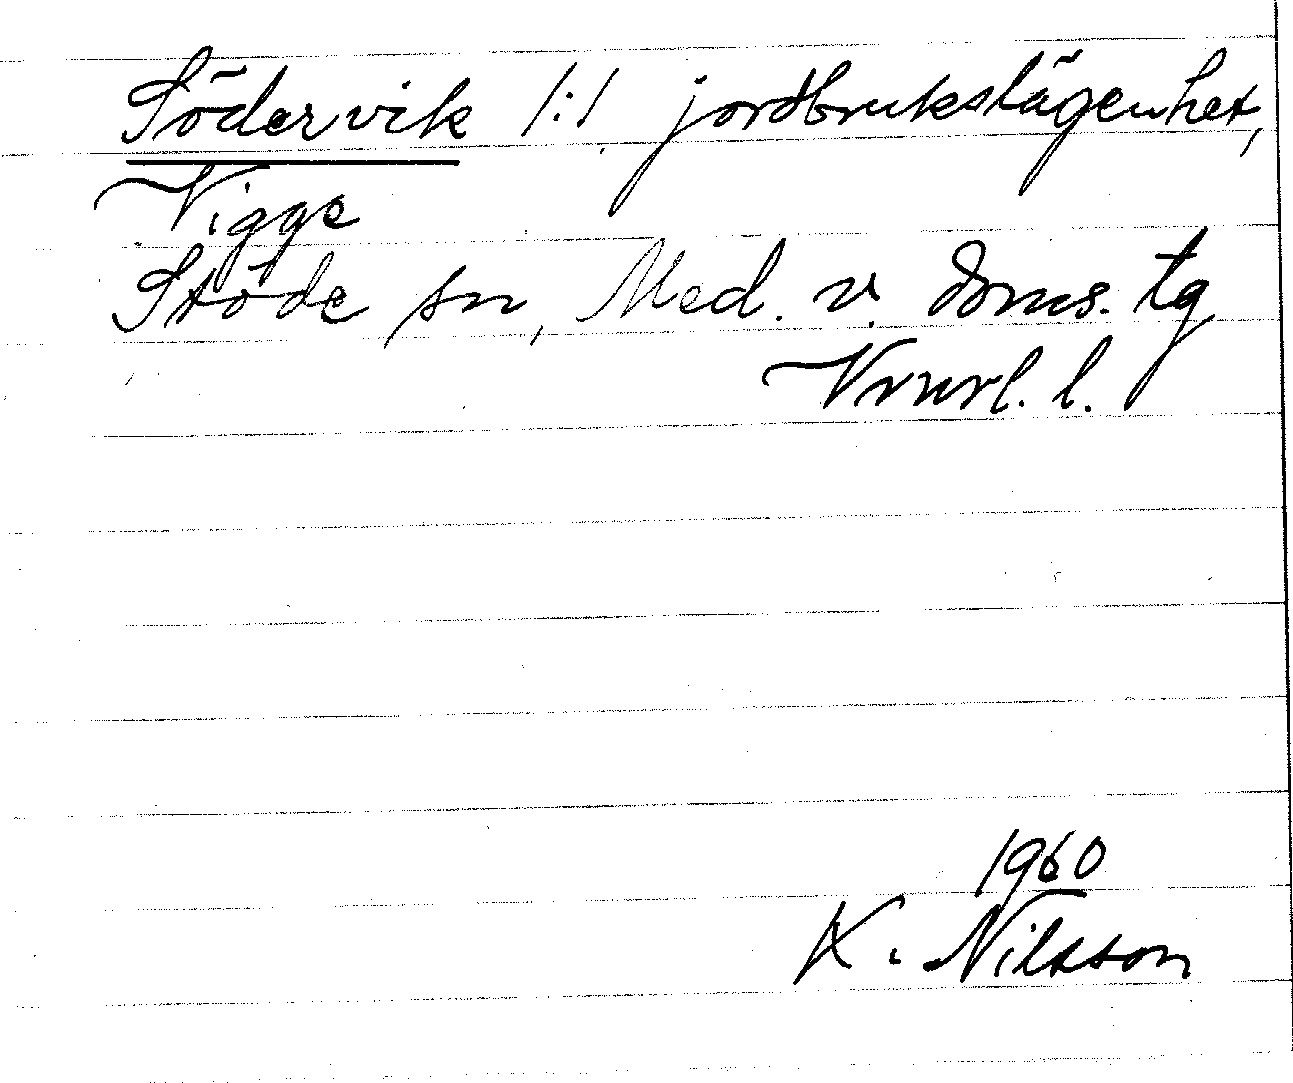 Södervik 1:1 jordbrukslägenhet,
Vigge
Stöde sn, Med. v. doms. tg
Vrnrl. l.
1960
K. Nilsson